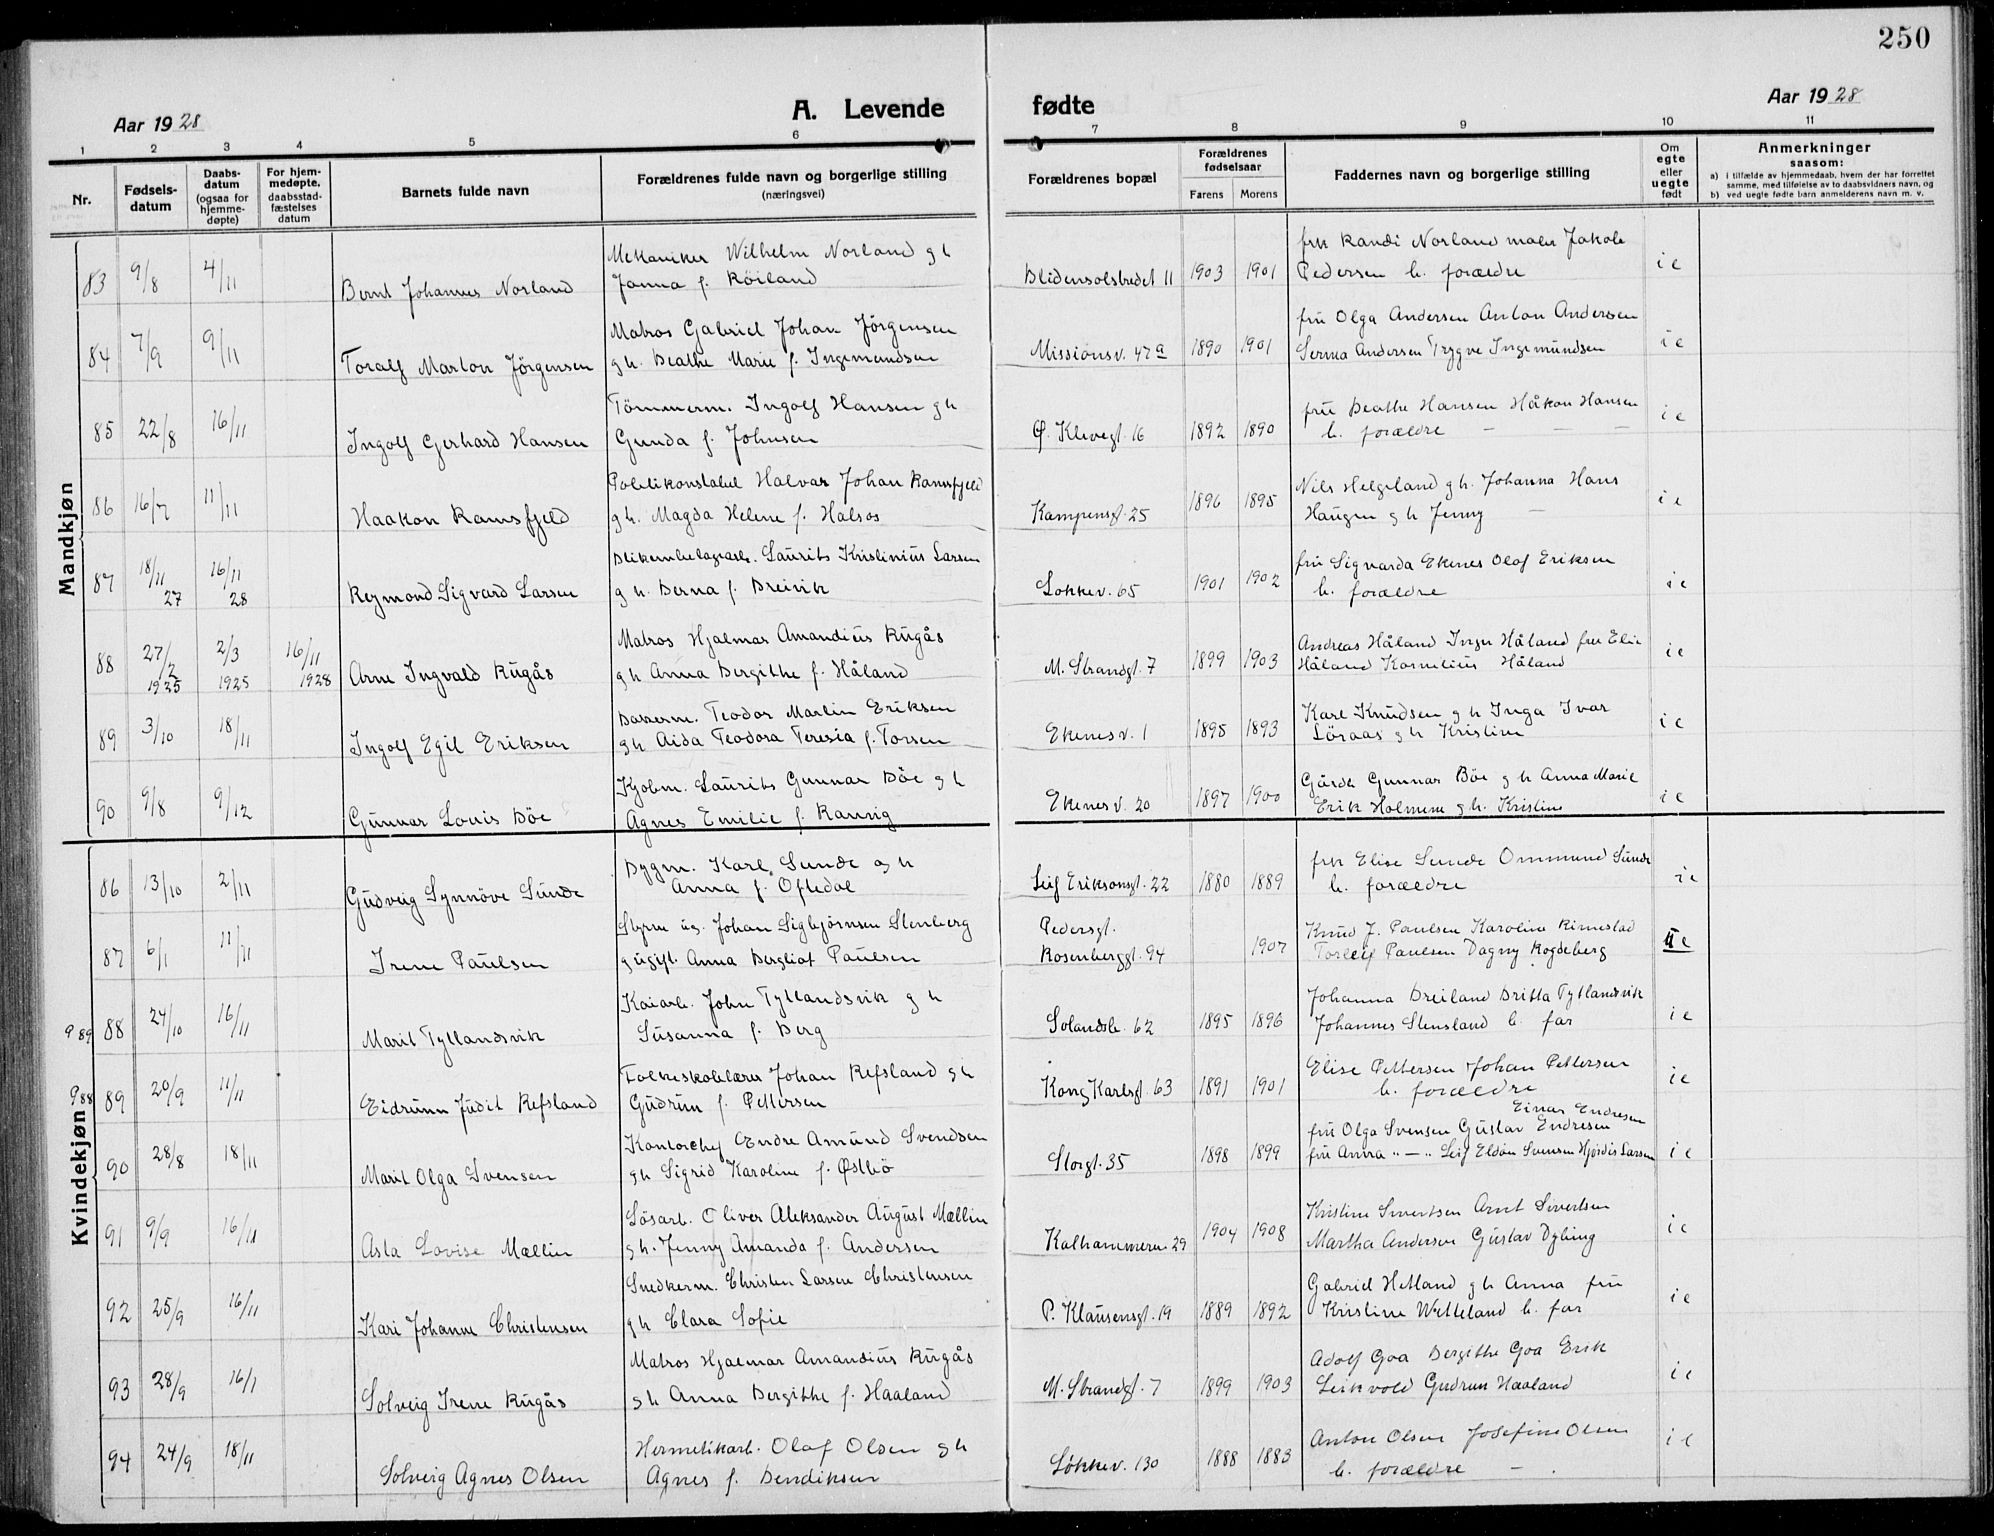 250
Aar 1928
A. Levende
fødte
Aar 1928
1 2 3 4 5 6 7 8 9 10 11
Nr.
Fødsels-
datum
Daabs-
datum
(ogsaa for
hjemme-
døpte)
For hjem-
medøpte,
daabsstad-
fæstelses
datum
Barnets fulde navn
Forældrenes fulde navn og borgerlige stilling
(næringsvei)
Forældrenes bopæl
Forældrenes
fødselsaar
Farens Morens
Faddernes navn og borgerlige stilling
Om
egte
eller
uegte
født
Anmerkninger
saasom:
a) i tilfælde av hjemmedaab, hvem der har forrettet
samme, med tilføielse av to daabsvidners navn, og
b) ved uegte fødte barn anmelderens navn m. v.
Mandkjøn
83 9/8 4/11 Bernt Johannes Norland
Mekaniker Wilhelm Norland g h
Janna f. Röiland
Blidensolstredet 11 1903 1901
frk Randi Norland maler Jakob
Pedersen b. forældre
i e
84 7/9 9/11 Toralf Marton Jörgensen
Matros Gabriel Johan Jörgensen
g h. Beathe Marie f. Ingemundsen
Missionsv. 47a 1890 1901
fru Olga Andersen Anton Andersen
Serina Andersen Trygve Ingemundsen
i e
85 22/8 16/11 Ingolf Gerhard Hansen
Tömmerm. Ingolf Hansen g h
Gunda f. Johnsen
Ø. Klevegt. 16 1892 1890
fru Beathe Hansen Håkon Hansen
b. forældre — — —
i e
86 16/7 11/11 Haakon Ramsfjeld
Politikonstabel Halvar Johan Ramsfjeld
g h. Magda Helene f. Halsos
Kampensgt. 25 1896 1895
Nils Helgeland g h. Johanna Hans
Haugen g h Jenny —
i e
87 18/11 27 16/11 28 Reymond Sigvard Larsen
Blikemballagearb. Laurits Kristinius Larsen
g h. Berna f. Breivik
Løkkev. 65 1901 1902
fru Sigvarda Ekenes Olaf Eriksen
b. forældre
i e
88 27/2 1925 2/3 1925 16/11 1928 Arne Ingvald Rugås
Matros Hjalmar Amandius Rugås
g h Anna Bergithe f. Håland
M. Strandgt. 7 1899 1903
Andreas Håland Inger Håland fru Elie
Håland Kornelius Håland
i e
89 3/10 18/11 Ingolf Egil Eriksen
Teodor Martin Eriksen
g h Aida Teodora Teresia f. Torsen
Ekenesv. 1 1895 1893
Karl Knudsen g h Inga Ivar
Löraas g h Kristine
i e
90 9/8 9/12 Gunnar Louis Böe
Kjøbm. Laurits Gunnar Böe g h
Agnes Emilie f. Rannig
Ekenesv. 20 1897 1900
Gunnar Böe g h Anna Marie
Erik Holmene g h. Kristine
i e
Kvindekjøn
86 13/10 2/11 Gudveig Synnöve Sunde
Bygm. Karl Sunde g h
Anna f. Oftedal
Leif Eriksonsgt. 22 1880 1889
frk Elise Sunde Ommund Sunde
b. forældre
i e
87 6/1 11/11 Irene Paulsen
Styrm ug. Johan Sigbjørnsen Stenberg
g ugift. Anna Bergliot Paulsen
Pedersgt.
Rosenberggt. 94 1907
Knud J. Paulsen Karoline Rimestad
Torleif Paulsen Dagny Rogdeberg
u e
9 89 88 24/10 16/11 Marit Tytlandsvik
Kaiarb. John Tytlandsvik g h
Susanna f. Berg
Solandsb. 62 1895 1896
Johanna Breiland Britta Tytlandsvik
Johannes Stensland b. far
i e
9 88 89 20/9 11/11 Eidrunn Judit Refsland
Folkeskolelærer Johan Refsland g h
Gudrun f. Pettersen
Kong Karlsgt. 63 1891 1901
Elise Pettersen Johan Pettersen
b. forældre
i e
90 28/8 18/11 Marit Olga Svensen
Kontorchef Endre Amund Svendsen
g h Sigrid Karoline f. Østbö
Storgt. 35 1898 1899
Einar Endresen
fru Olga Svensen Gustav Endresen
fru Anna " — " Leif Eldøn Svensen Hjördis Larsen
i e
91 9/9 16/11 Asta Lovise Mællin
Lösarb. Oliver Aleksander August Mællin
g h. Jenny Amanda f. Andersen
Kalhammeren 29 1904 1908
Kristine Sivertsen Arnt Sivertsen
Martha Andersen Gustav Dybing
i e
92 25/9 16/11 Kari Johanne Christensen
Snedkerm. Christen Larsen Christensen
g h Clara Sofie
P. Klausensgt. 19 1889 1892
Gabriel Hetland g h Anna fru
Kristine Wetteland b. far
i e
93 28/9 16/1 Solveig Irene Rugås
Matros Hjalmar Amandius Rugås
g h Anna Bergithe f. Haaland
M. Strandgt. 7 1899 1903
Adolf Goa Bergithe Goa Erik
Leikvold Gudrun Haaland
i e
94 24/9 18/11 Solveig Agnes Olsen
Hermetikarb. Olaf Olsen g h
Agnes f. Bendiksen
Løkkev. 130 1888 1883
Anton Olsen Josefine Olsen
b. forældre — .
i e